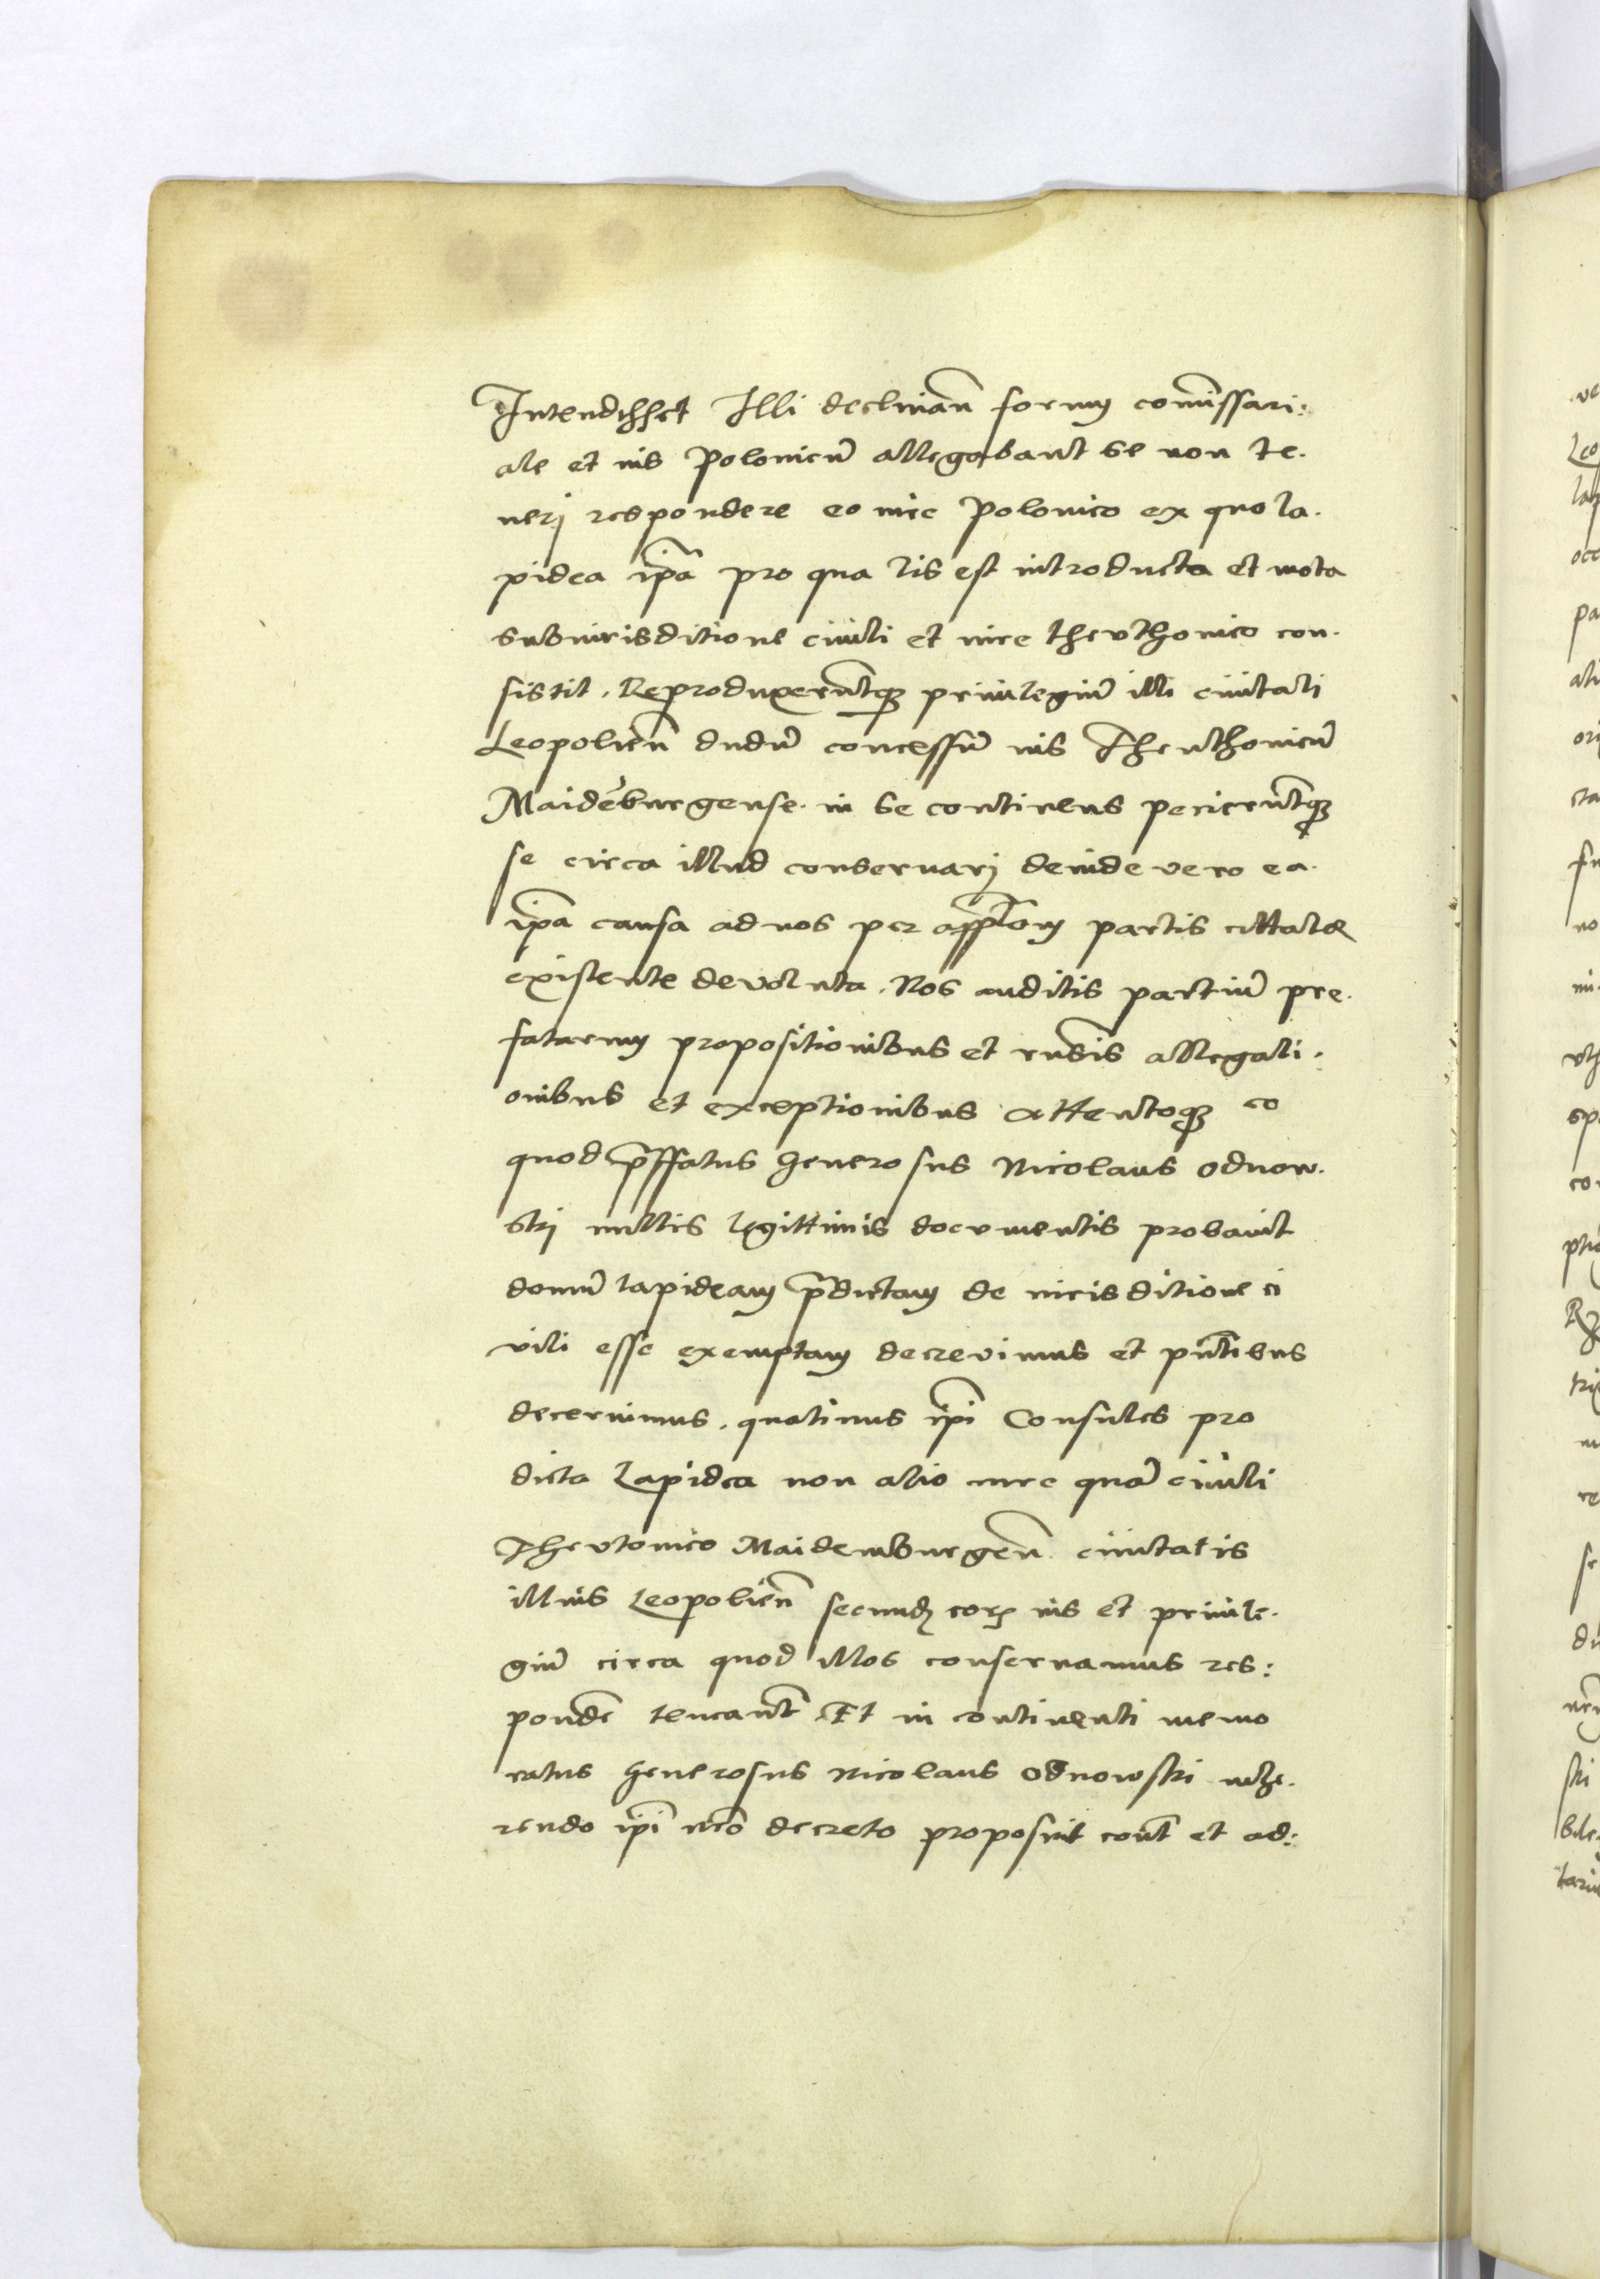 Intendisset Illi declinan̄ forum com̄issari:
ale et ius Polonicū allegabant se non te.
nerj respondere eo iure Polonico ex quo la.
pidea ip̄a pro qua lis est introducta et mota
subiurisditione ciuili et iure theuthonico con.
sistit. Reproduxerūtqȝ priuilegiū illi ciuitati
Leopolien̄ dudū concessū ius Theuthonicū
Maidēburgense in se continens pecierūtqȝ
se circa illud conseruarj deinde vero ea.
ip̄a causa ad nos per app̄lōm partis cittate
existente devoluta. Nos auditis partiū pre.
fatarum propositionibus et eūsis allegati:
onibus et exceptionibus attentoqȝ eo
quod p̄ffatus Generosus Nicolaus Odnow.
skj nullis legittimis documentis probauit
domū lapideam p̄dictam de iurisditione ci
vili esse exemptam decrevimus et pn̄tibus
decernimus. quatinus ip̄i Consules pro
dicta Lapidea non alio iure quā ciuili
Theutonico Maidemburgen̄ ciuitatis
illius Leopolien̄ secundȝ eorȝ ius et priuile.
giū circa quod illos conseruamus res:
ponde͂ teneant̄ Et in continenti memo
ratus Generosus Nicolaus Odnowski inhe.
rendo ip̄i nr̄o decreto proposuit cont̄ et ad:
ve
Leo
lap
occ
pa
ori
cta
no
uth
spo
con
ski